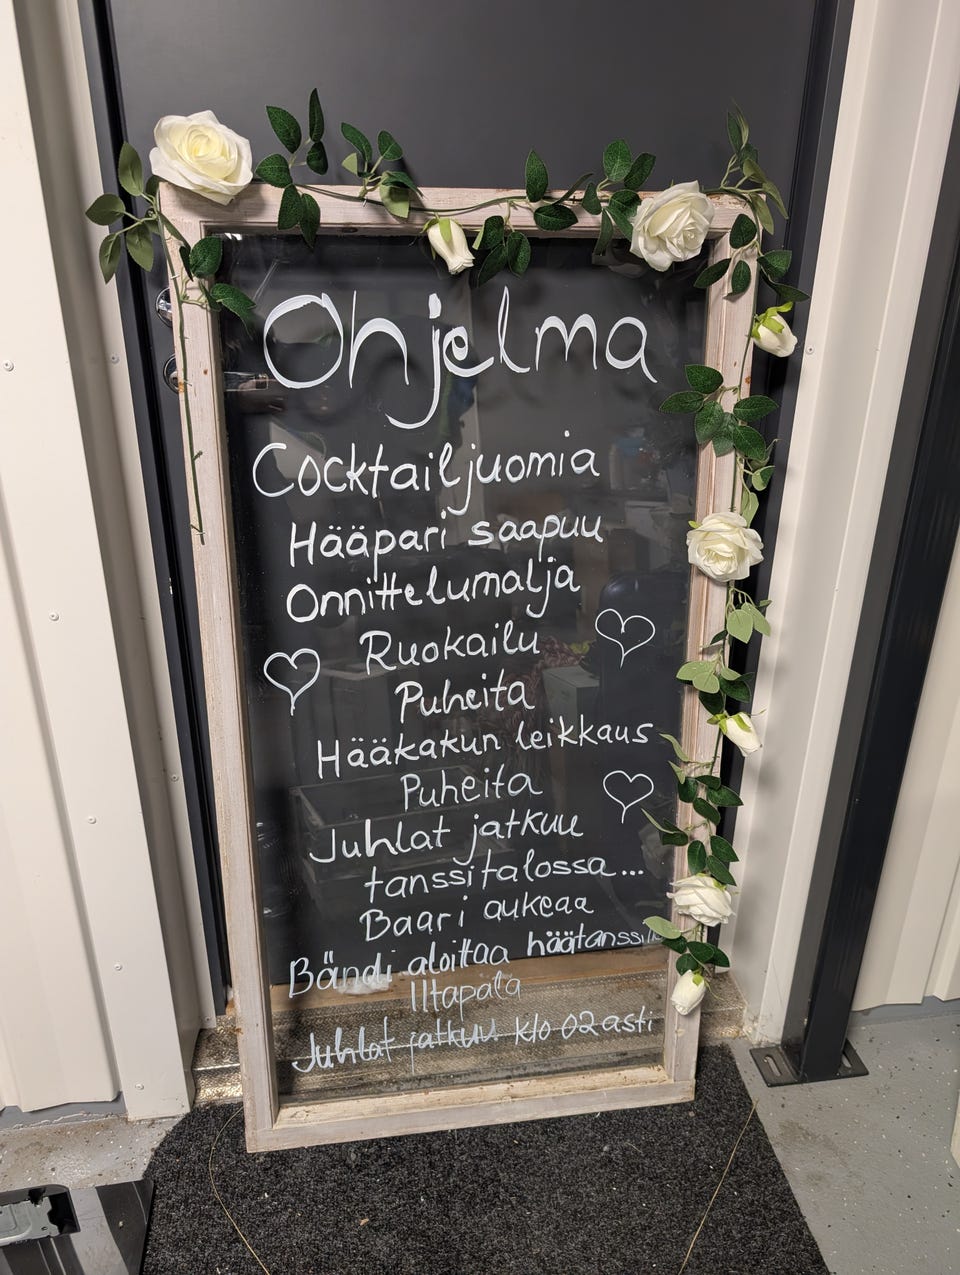 Ohjelma
Cocktailjuomia
Hääpari saapuu
Onnittelumalja
Ruokailu
Puheita
Hääkakun leikkaus
Puheita
Juhlat jatkuu
tanssitalossa...
Baari aukeaa
Bändi aloittaa häätanssilla
Iltapala
Juhlat jatkuu klo 02 asti